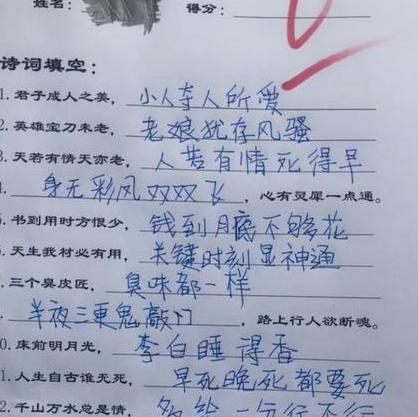 姓名： 得分：
诗词填空：
1. 君子成人之美，小人夺人所爱
2. 英雄宝刀未老，老娘犹存风骚
3. 天若有情天亦老，人若有情死得早
身无彩凤双双飞，心有灵犀一点通。
书到用时方恨少，钱到月底不够花
天生我材必有用，关键时刻显神通
三个臭皮匠，臭味都一样
半夜三更鬼敲门，路上行人欲断魂。
0. 床前明月光，李白睡得香
1. 人生自古谁无死，早死晚死都要死
2. 千山万水总是情，多给一分行不行